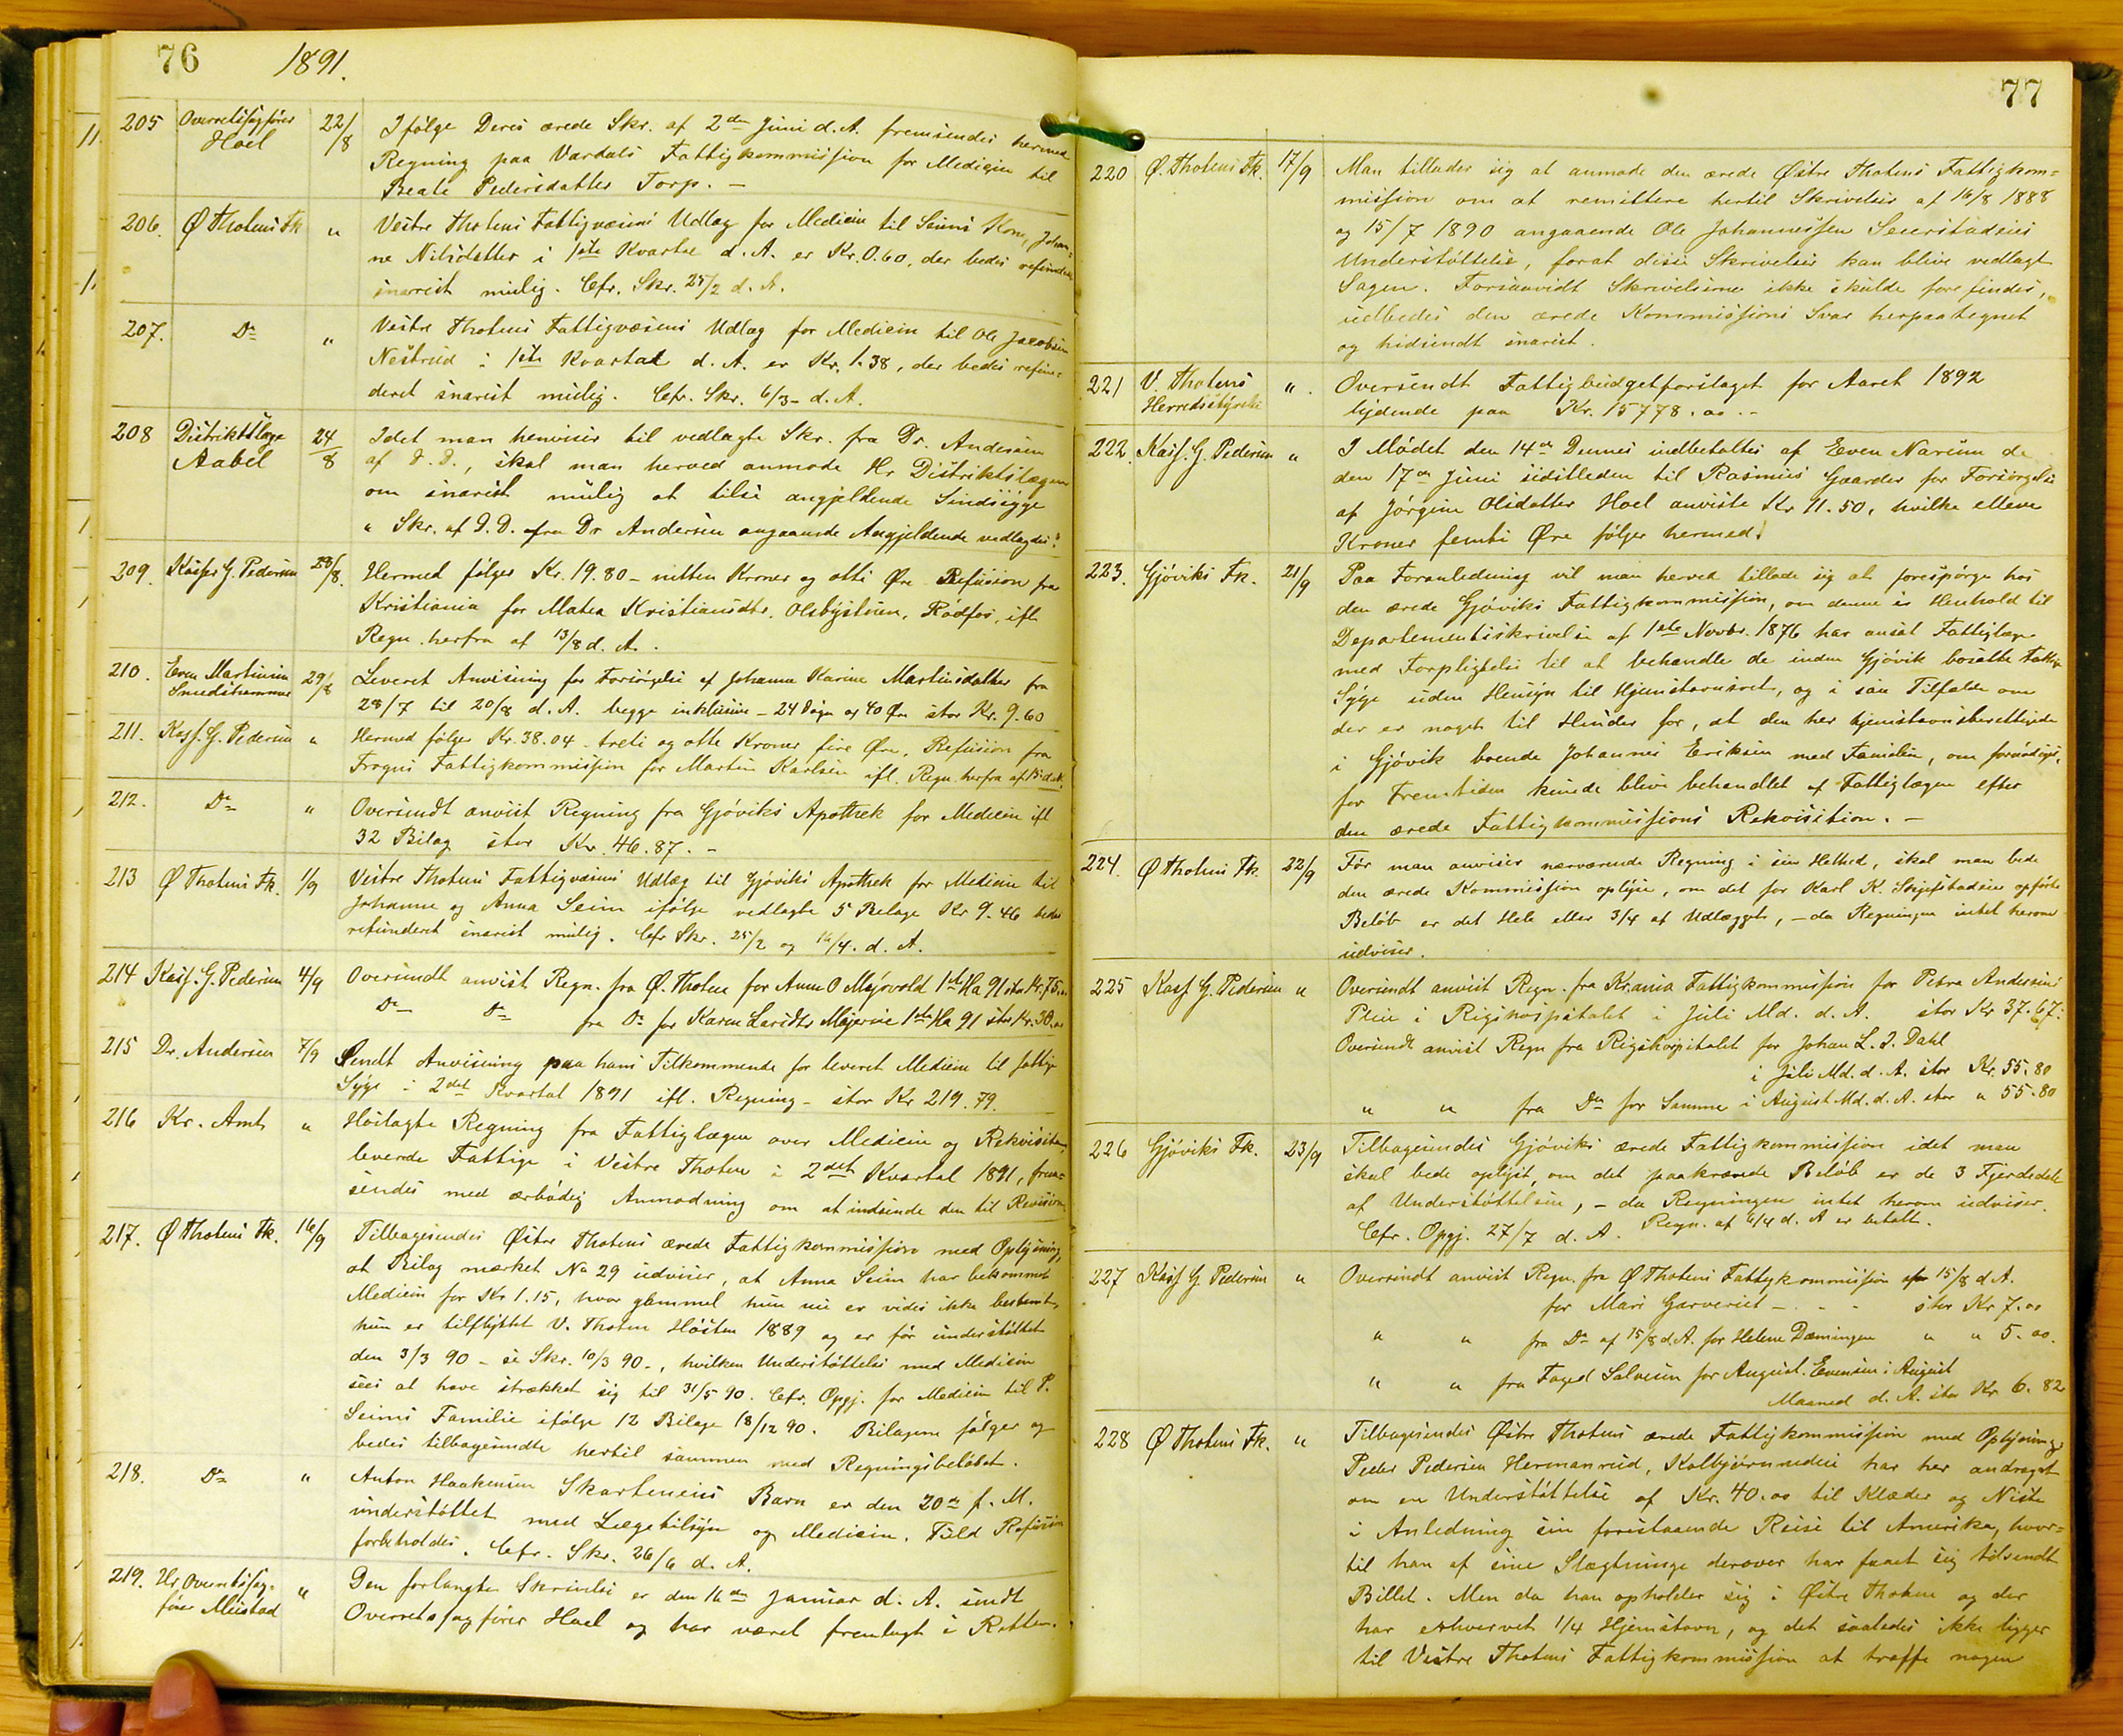 76 1891.
205 Overretssagfører 22/8 Ifølge Deres ærede Skr. af 2den Juni d. A. fremsendes hermed
Hoel Regning paa Vardals Fattigkommission for Medicin til
Beate Pedersdatter Torp. –
206. Ø Thotens Fk " Vestre Thotens Fattigvæsens Udlæg for Medicin til Seims Kone, Johan-
ne Nilsdatter i 1ste Kvartal d. A. er Kr. 0.60, der bedes refunderet
snarest mulig. Cfr. Skr. 25/2 d. A.
207. Do " Vestre Thotens Fattigvæsens Udlæg for Medicin til Ole Jacobsen
Nestrud i 1ste Kvartal d. A. er Kr. 1.38, der bedes refun-
deret snarest mulig. Cfr. Skr. 6/3 – d. A.
208 Distriktslæge 24/8 Idet man henviser til vedlagte Skr. fra Dr. Andersen
Aabel af D. D., skal man herved anmode Hr Distriktslægen
om snarest mulig at tilse angjældende Sindssyge
" Skr. af D. D. fra Dr Andersen angaaende Angjældende vedlagdes."
209. Kasser G. Pedersen 28/8. Hermed følger Kr. 19.80 – nitten Kroner og otti Øre Refusion fra
Kristiania for Matea Kristiansdtr. Olsbystuen, Rødfos, ifl.
Regn. herfra af 13/8 d. A.
210. Even Martinsen 29/8 Leveret Anvisning for Forsørgelse af Johanna Karine Martinsdatter fra
Smedshammer 28/7 til 20/8 d. A. begge inklusive – 24 Døgn og 40 Øre stor Kr. 9.60
211. Kass. G. Pedersen " Hermed følger Kr. 38.04 – treti og otte Kroner fire Øre, Refusion fra
Frogns Fattigkommission for Martin Karlsen ifl. Regn. herfra af d. A.
212. Do " Oversendt anvist Regning fra Gjøviks Apothek for Medicin ifl
32 Bilag stor Kr. 46.87. –
213 Ø Thotens Fk. 1/9 Vestre Thotens Fattigvæsens Udlæg til Gjøviks Apothek for Medicin til
Johanne og Anna Seim ifølge vedlagte 5 Bilage Kr 9.46 bedes
refunderet snarest mulig. Cfr Skr. 25/2 og 16/4. d. A.
214 Kass. G. Pedersen 4/9 Oversendt anvist Regn. fra Ø. Thoten for Anne O Majovold 1ste Ha 91 stor Kr. 75.00
Do Do fra Do for Karen Larsdtr Majerine 1ste Ha 91 stor Kr. 30.00
215 Dr. Andersen 7/9 Sendt Anvisning paa hans Tilkommende for leveret Medicin til fattige
Syge i 2det Kvartal 1891 ifl. Regning – stor Kr 219.79.
216 Kr. Amt " Hoslagte Regning fra Fattiglægen over Medicin og Rekvisiter
leverede Fattige i Vestre Thoten i 2det Kvartal 1891, frem-
sendes med ærbødig Anmodning om at indsende den til Revision.
217. Ø Thotens Fk. 16/9 Tilbagesendes Østre Thotens ærede Fattigkommission med Oplysning,
at Bilag mærket No 29 udviser, at Anna Seim har bekommet
Medicin for Kr 1.15, hvor gammel hun nu er vides ikke bestemt,
hun er tilflyttet V. Thoten Høsten 1889 og er før understøttet
den 3/3 90 – se Skr. 10/3 90 –, hvilken Understøttelse med Medicin
sees at have strækket sig til 31/5 90. Cfr. Opgj. for Medicin til P.
Seims Familie ifølge 12 Bilage 18/12 90. Bilagene følger og
bedes tilbagesendte hertil sammen med Regningsbeløbet.
218. Do " Anton Haakensen Skarteneies Barn er den 20de f. M.
understøttet med Lægetilsyn og Medicin. Fuld Refusion
forbeholdes. Cfr. Skr. 26/6 d. A.
219. Hr. Overretssag- " Den forlangte Skrivelse er den 16de Januar d. A. sendt
fører Mustad Overretssagfører Hoel og har været fremlagt i Retten.
77
220 Ø. Thotens Fk. 17/9 Man tillader sig at anmode den ærede Østre Thotens Fattigkom-
mission om at remittere hertil Skrivelser af 16/8 1888
og 15/7 1890 angaaende Ole Johannessen Seierstadeies
Understøttelse, forat disse Skrivelser kan blive vedlagt
Sagen. Forsaavidt Skrivelserne ikke skulde forefindes,
udbedes den ærede Kommissions Svar herpaategnet
og hidsendt snarest.
221 V. Thotens " . Oversendt Fattigbudgetforslaget for Aaret 1892
Herredsstyrelse lydende paa Kr. 15778.00. –
222. Kass. G. Pedersen " I Mødet den 14de Dennes indbetaltes af Even Narum de
den 17de Juni sidstleden til Rasmus Gaarder for Forsørgelse
af Jørgine Olsdatter Hoel anviste Kr 11.50, hvilke elleve
Kroner femti Øre følger hermed.
223. Gjøviks Fk. 21/9 Paa Foranledning vil man herved tillade sig at forespørge hos
den ærede Gjøviks Fattigkommission, om denne i Henhold til
Departementsskrivelse af 1ste Novbr. 1876 har ansat Fattiglæge
med Forpligtelse til at behandle de inden Gjøvik bosatte fattige
Syge uden Hensyn til Hjemstavnsret, og i saa Tilfælde om
der er noget til Hinder for, at den her hjemstavnsberettigede
i Gjøvik boende Johannes Eriksen med Familie, om fornødiges,
for Fremtiden kunde blive behandlet af Fattiglægen efter
den ærede Fattigkommissions Rekvisition. –
224. Ø Thotens Fk. 22/9 Før man anviser nærværende Regning i sin Helhed, skal man bede
den ærede Kommission oplyse, om det for Karl K. opførte
Beløb er det Hele eller 3/4 af Udlægget, – da Regningen intet herom
udviser.
225 Kass G. Pedersen " Oversendt anvist Regn. fra Kr.ania Fattigkommission for Petra Andersens
Pleie i Rigshospitalet i Juli Md. d. A. stor Kr 37.67.
Oversendt anvist Regn fra Rigshospitalet for Johan L. J. Dahl
i Juli Md. d. A. stor Kr. 55.80
" " fra Do for Samme i August Md. d. A. stor " 55.80
226 Gjøviks Fk. 23/9 Tilbagesendes Gjøviks ærede Fattigkommission idet man
skal bede oplyst, om det paakrævede Beløb er de 3 Fjerdedele
af Understøttelsen, – da Regningen intet herom udviser.
Cfr. Opgj. 27/7 d. A. Regn. af 6/4 d. A er betalt.
227 Kass G. Pedersen " Oversendt anvist Regn. fra Ø Thotens Fattigkommission af 15/8 d A.
for Mari Garveriet – . - - stor Kr 7.00
" " fra Do af 15/8 d. A. for Helene Dæmingen " " 5.00.
" " fra Foged Salvesen for August Evensen i August
Maaned d. A. stor Kr 6.82
228 Ø Thotens Fk. " Tilbagesendes Østre Thotens ærede Fattigkommission med Oplysning,
Peder Pedersen Hermanrud, Kolbjørnrudeie har her andraget
om en Understøttelse af Kr. 40.00 til Klæder og Niste
i Anledning sin forestaaende Reise til Amerika, hvor-
til han af sine Slægtninge derover har faaet sig tilsendt
Billet. Men da han opholder sig i Østre Thoten og der
har erhvervet 1/4 Hjemstavn, og det saaledes ikke ligger
til Vestre Thotens Fattigkommission at træffe nogen